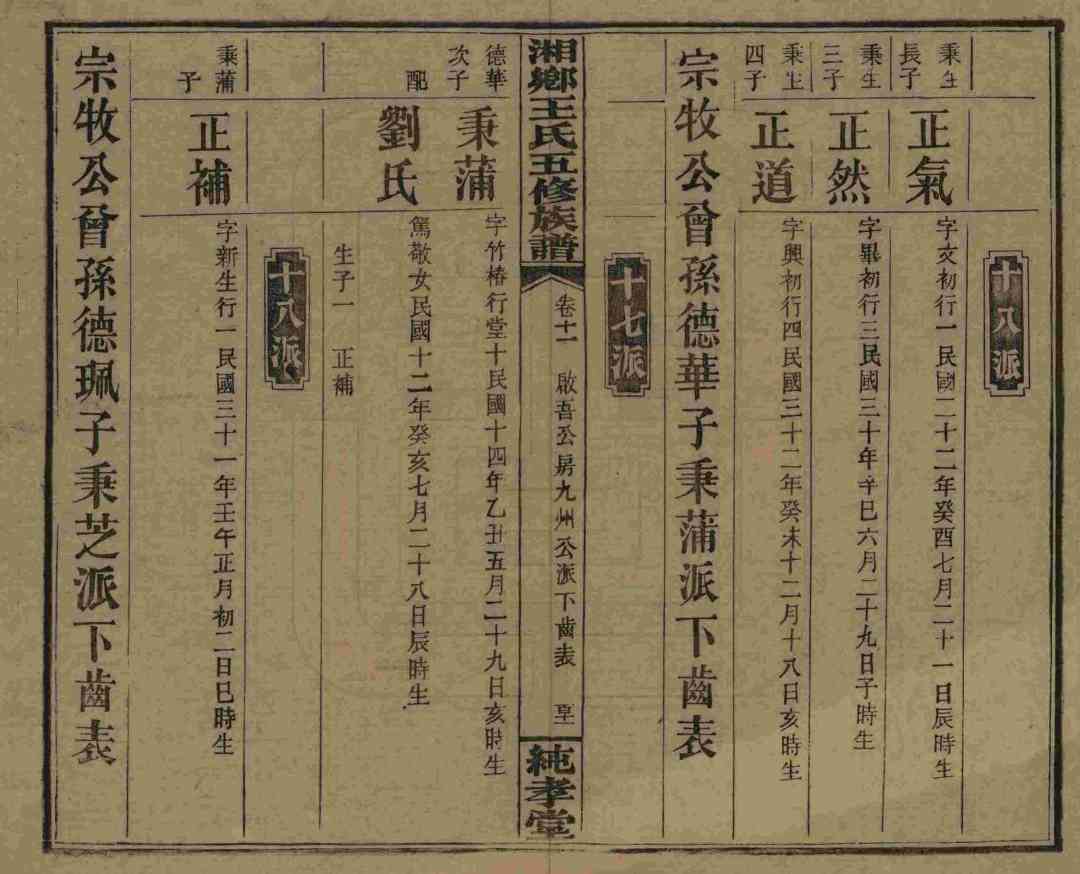 十八派
秉生長子
正氣
字文初行一民國二十二年癸酉七月二十一日辰時生
秉生三子
正然
字畢初行三民國三十年辛巳六月二十九日子時生
秉生四子
正道
字興初行四民國三十二年癸未十二月十八日亥時生
宗牧公曾孫德華子秉蒲派下齒表
十七派
湘鄉王氏五修族譜
卷十一 啟吾公房九州公派下齒表
純孝堂
德華次子
秉蒲
字竹椿行堂十民國十四年乙丑五月二十九日亥時生
配
劉氏
篤敬女民國十二年癸亥七月二十八日辰時生
生子一 正補
十八派
秉蒲子
正補
字新生行一民國三十一年壬午正月初二日巳時生
宗牧公曾孫德珮子秉芝派下齒表